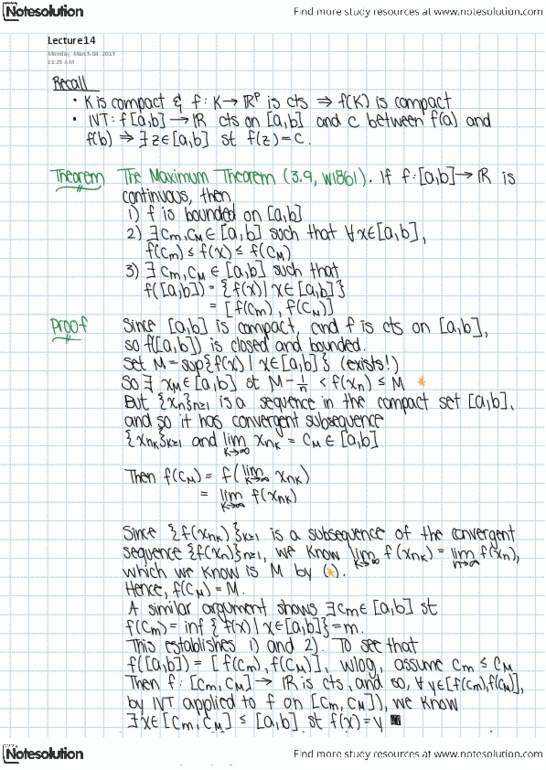 Notesolution
Find more study resources at www.notesolution.com
Lecture14
Monday, March 04, 2013
11:25 AM
Recall
• K is compact & f: K→ℝᴾ is cts ⇒ f(K) is compact
• IVT: f[a,b]→ℝ cts on [a,b] and c between f(a) and
f(b) ⇒ ∃z∈[a,b] st f(z)=c.
Theorem The Maximum Theorem (3.9, W1861). If f:[a,b]→ℝ is
continuous, then
1) f is bounded on [a,b]
2) ∃cm,cM∈[a,b] such that ∀x∈[a,b],
f(cm)≤f(x)≤f(cM)
3) ∃cm,cM∈[a,b] such that
f([a,b])={f(x)|x∈[a,b]}
=[f(cm),f(cM)]
Proof Since [a,b] is compact, and f is cts on [a,b],
so f([a,b]) is closed and bounded.
Set M=sup{f(x)|x∈[a,b]} (exists!)
So ∃ xM∈[a,b] st M-1/n<f(xn)≤M *
But {xn}n≥1 is a sequence in the compact set [a,b],
and so it has convergent subsequence
{xnk}k≥1 and lim k→∞ xnk=cM∈[a,b]
Then f(cM)=f(lim k→∞ xnk)
=lim k→∞ f(xnk)
Since {f(xnk)}k≥1 is a subsequence of the convergent
sequence {f(xn)}n≥1, we know lim k→∞ f(xnk)=lim n→∞ f(xn),
which we know is M by (*).
Hence, f(cM)=M.
A similar argument shows ∃cm∈[a,b] st
f(cm)=inf{f(x)|x∈[a,b]}=m.
This establishes 1) and 2). To see that
f([a,b])=[f(cm),f(cM)], wlog, assume cm≤cM
Then f:[cm,cM]→ℝ is cts, and so, ∀y∈[f(cm),f(cM)],
by IVT applied to f on [cm,cM]), we know
∃x∈[cm,cM]≤[a,b] st f(x)=y ■
Notesolution
Find more study resources at www.notesolution.com